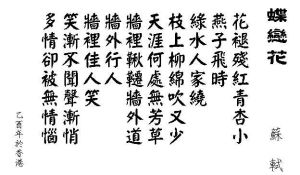 蝶戀花
蘇軾
花褪殘紅青杏小
燕子飛時
綠水人家繞
枝上柳綿吹又少
天涯何處無芳草
牆裡鞦韆牆外道
牆外行人
牆裡佳人笑
笑漸不聞聲漸悄
多情卻被無情惱
乙酉年於香港